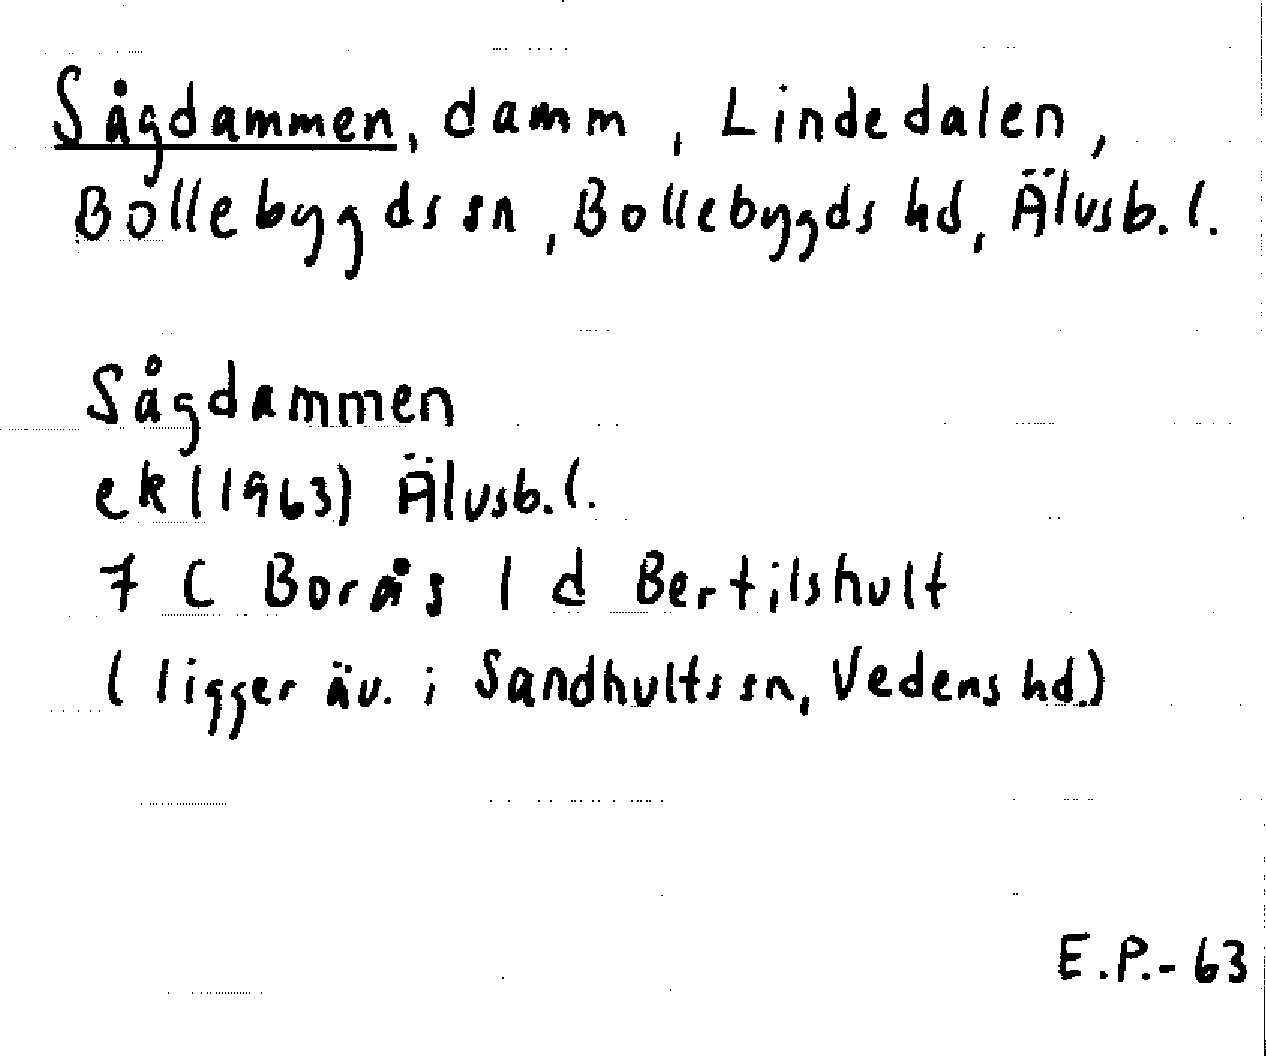 Sågdammen, damm, Lindedalen,
Bollebygds sn, Bollebygds hd, Älvsb. l.
Sågdammen
ek (1963) Älvsb. l.
7 C Borås 1 d Bertilshult
(ligger äv. i Sandhults sn, Vedens hd.)
E.P.-63